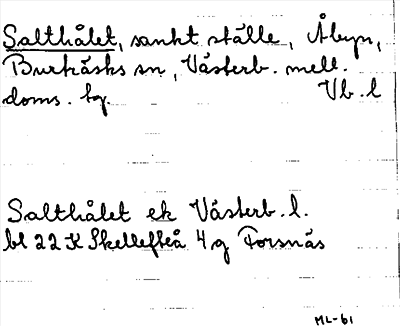 Salthålet, sankt ställe, Åbyn,
Burträsks sn, Västerb. mell.
doms. hg. Vb. l
Salthålet ek Västerb. l.
bl 22 K Skellefteå 4 g Forsnäs
ML-61